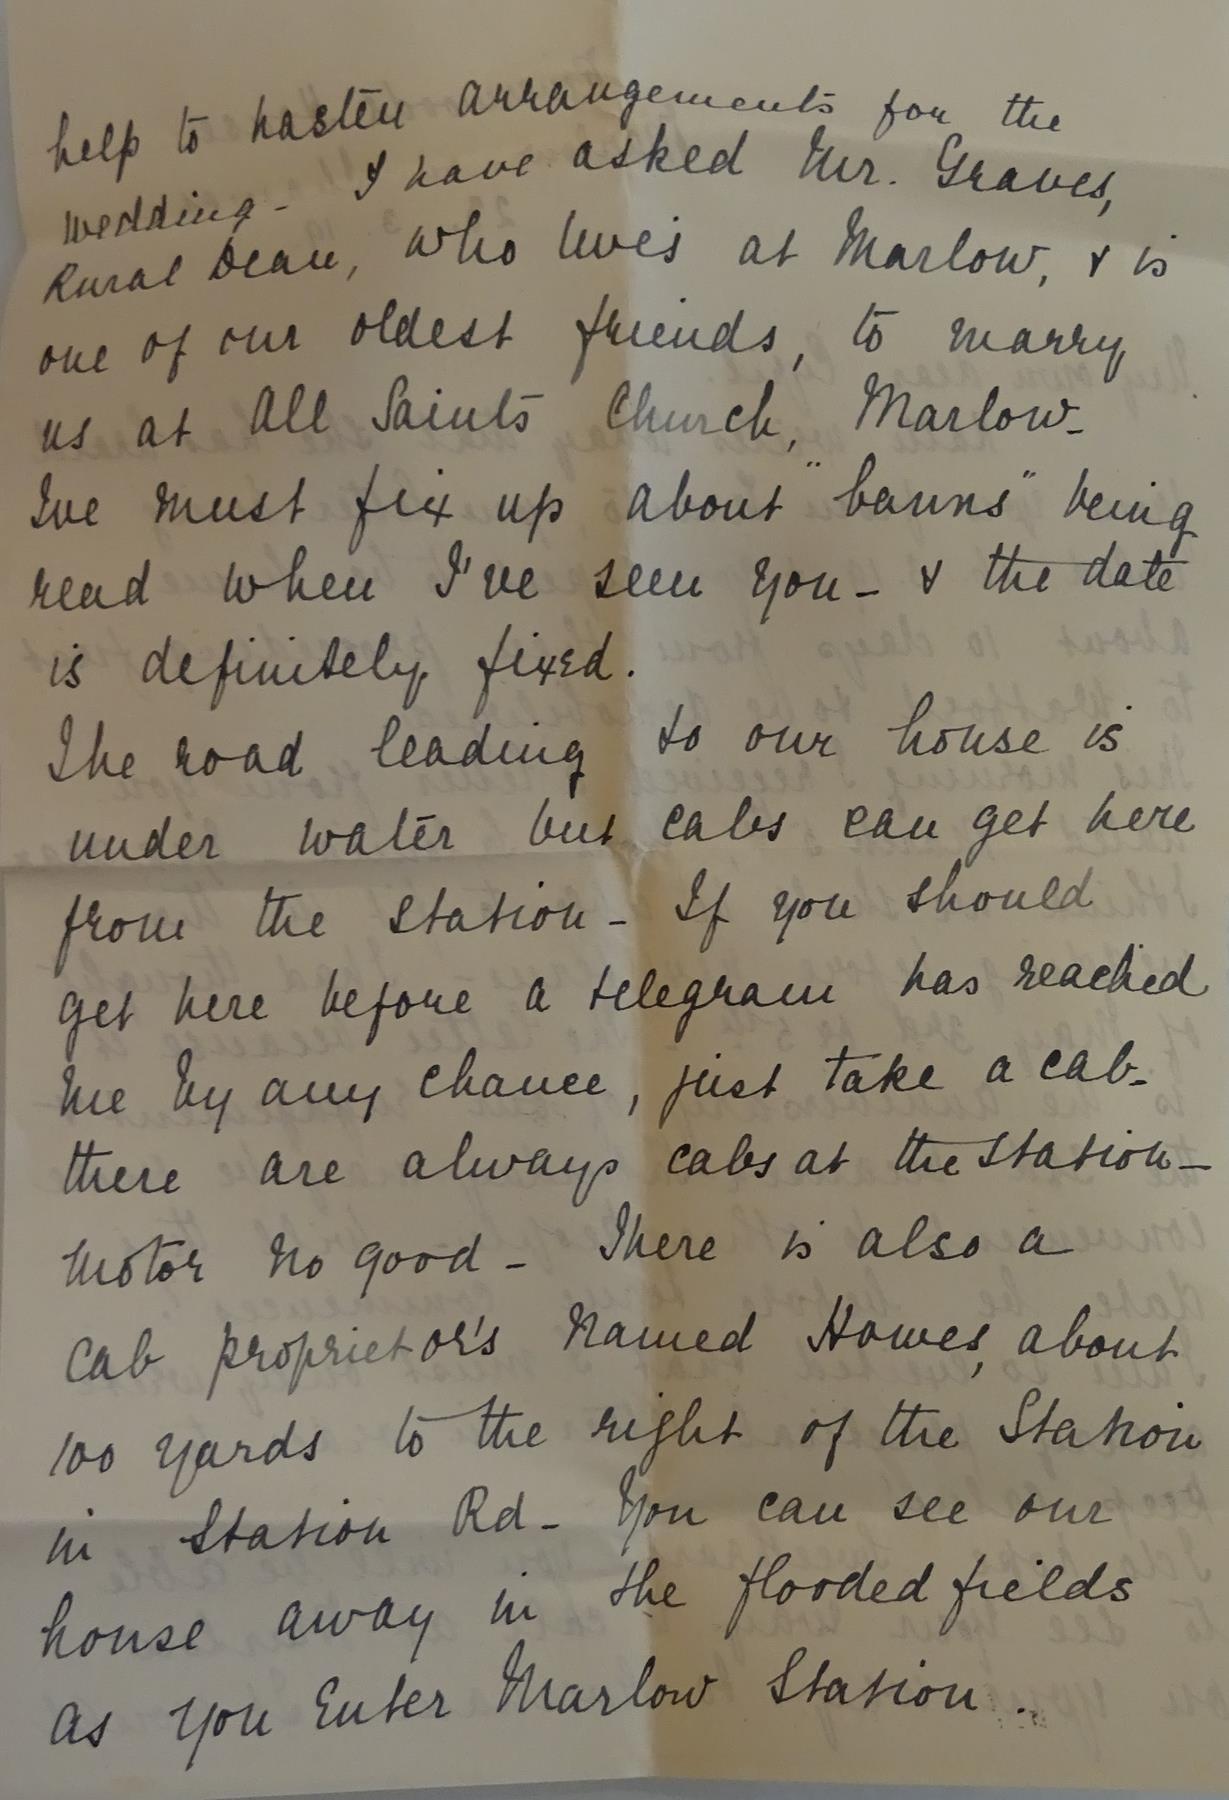 help to hasten arrangements for the
wedding - I have asked Mr. Graves,
Rural Dean, who lives at Marlow, & is
one of our oldest friends, to marry
us at All Saints Church, Marlow -
We must fix up about "banns" being
read when I've seen you - & the date
is definitely fixed.
The road leading to our house is
under water but cabs can get here
from the station - If you should
get here before a telegram has reached
me by any chance, just take a cab -
there are always cabs at the station -
motor no good - There is also a
cab proprietor's named Howes, about
100 yards to the right of the Station
in Station Rd - You can see our
house away in the flooded fields
as you enter Marlow Station.